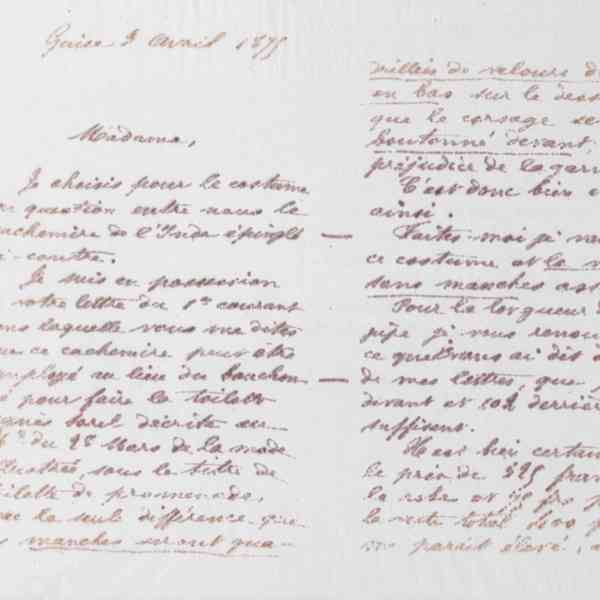 Guise 3 Avril 1875
Madame,
Je choisis pour le costume
en question entre nous le
cachemire de l'Inde épinglé
ci-contre.
Je suis en possession
votre lettre du 1er courant
dans laquelle vous me dites
que ce cachemire peut être
employé au lieu du
pour faire la toilette
Agnès Sorel décrite au
du 2e Mars de la mode
illustrée sous la titre de
toilette de promenade,
avec la seule différence que
manches seront qua-
drillées de velours d
en bas sur le dess
que le corsage se
boutonne devant
préjudice de la garn
C'est donc bien
ainsi.
Faites-moi je v
ce costume et la
sans manches ass
Pour la longueur
jupe je vous renou
ce que vous ai dit
de mes lettres, que
devant et 102 derriè
suffisent.
Il est bien certain
le prix de 525 fran
la robe et frs p
la veste total
me parait élevé,